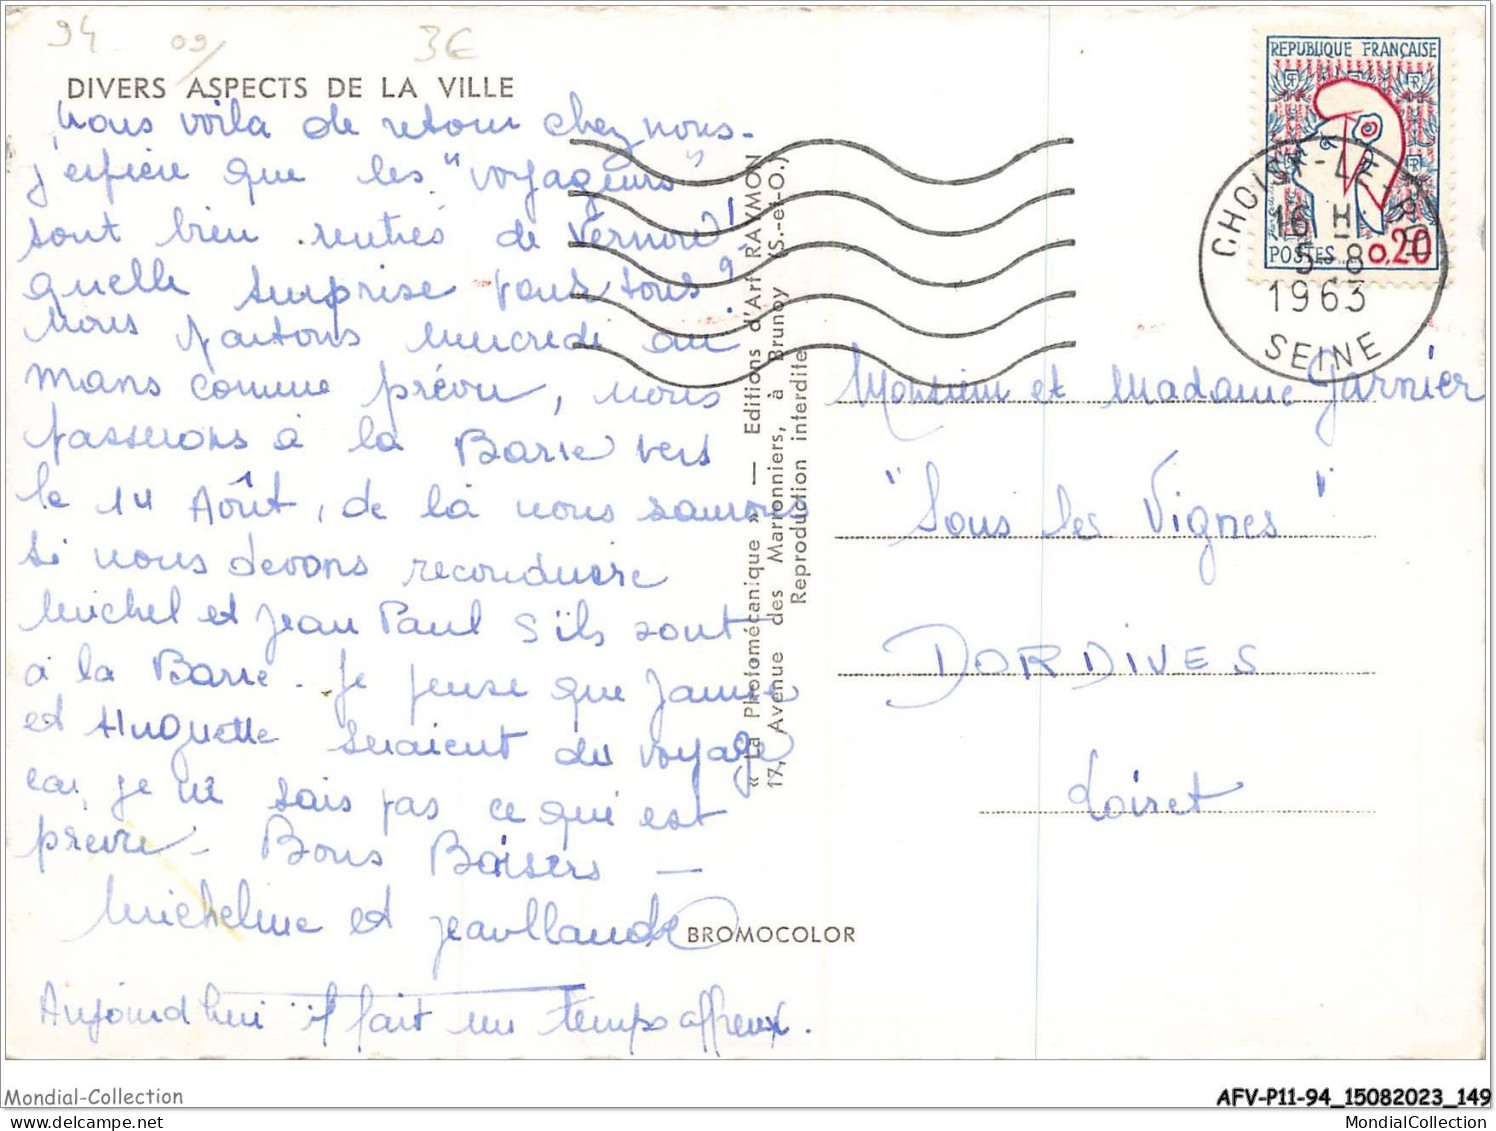 94 09/ 3€
DIVERS ASPECTS DE LA VILLE
Nous voila de retour chez nous -
j'espère que les "voyageurs"
sont bien rentrés de Vernon !
quelle surprise pour tous ?
Nous partons mercredi au
mans comme prévu, nous
passerons à la Barre vers
le 14 Août, de là nous saurons
si nous devons reconduire
Michel et Jean Paul s'ils sont
à la Barre. Je pense que Jamie
et Huguette seraient du voyage
car je ne sais pas ce qui est
prévu - Bons Baisers -
Micheline et Jean Claude
Aujourd'hui il fait un temps affreux.
BROMOCOLOR
« La Photomécanique » — Editions d'Art RAYMON
17, Avenue des Marronniers, à Brunoy (S.-et-O.)
Reproduction interdite
REPUBLIQUE FRANÇAISE
POSTES 0,20
CHOISY-LE-ROI
16 H
5-8
1963
SEINE
Monsieur et Madame Garnier
"Sous les Vignes"
DORDIVES
Loiret
Mondial-Collection
AFV-P11-94_15082023_149
MondialCollection
www.delcampe.net